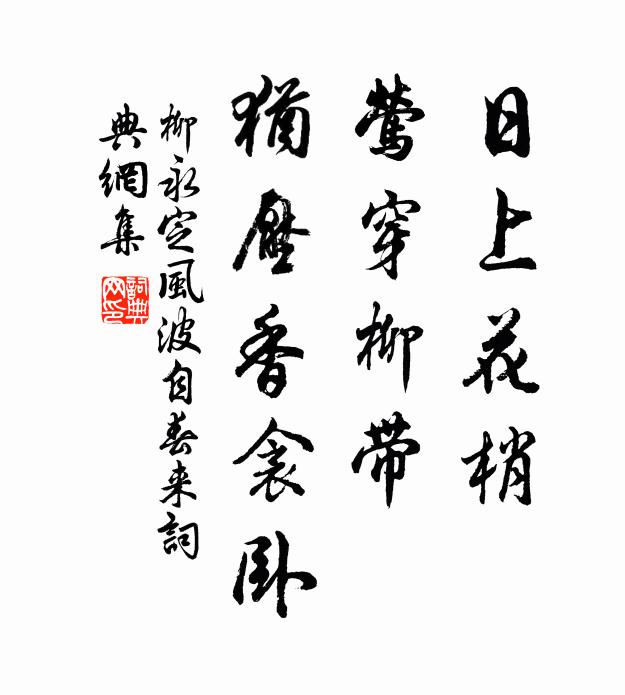 日上花梢
鶯穿柳帶
猶壓香衾卧
柳永定風波自春来詞
典網集
詞典
网印